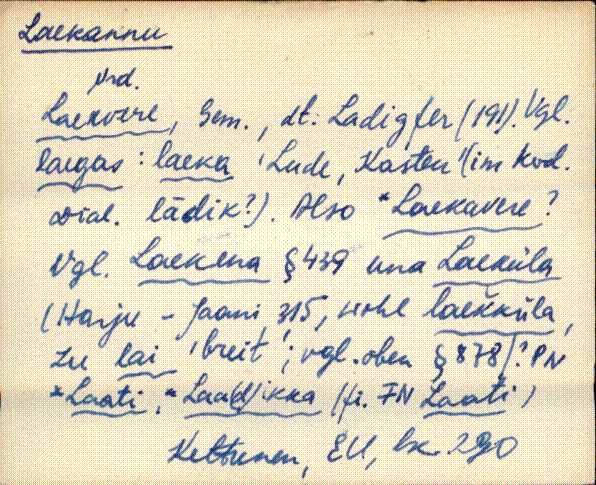 Laekannu
vrd.
Laekvere, Gem., dt: Ladigfer (191). Vgl.
laegas: laeka 'Lade, Kasten' (im kod.
Dial. lädik?). Also *Laekavere?
Vgl. Laekena § 439 und Laeküla
(Harju - Jaani, 315, wohl laekküla,
zu lai 'breit'; vgl. oben § 878)? PN
*Laati, *Laad)ikka (fi. FN Laati)
Kettunen, EU, lk. 290